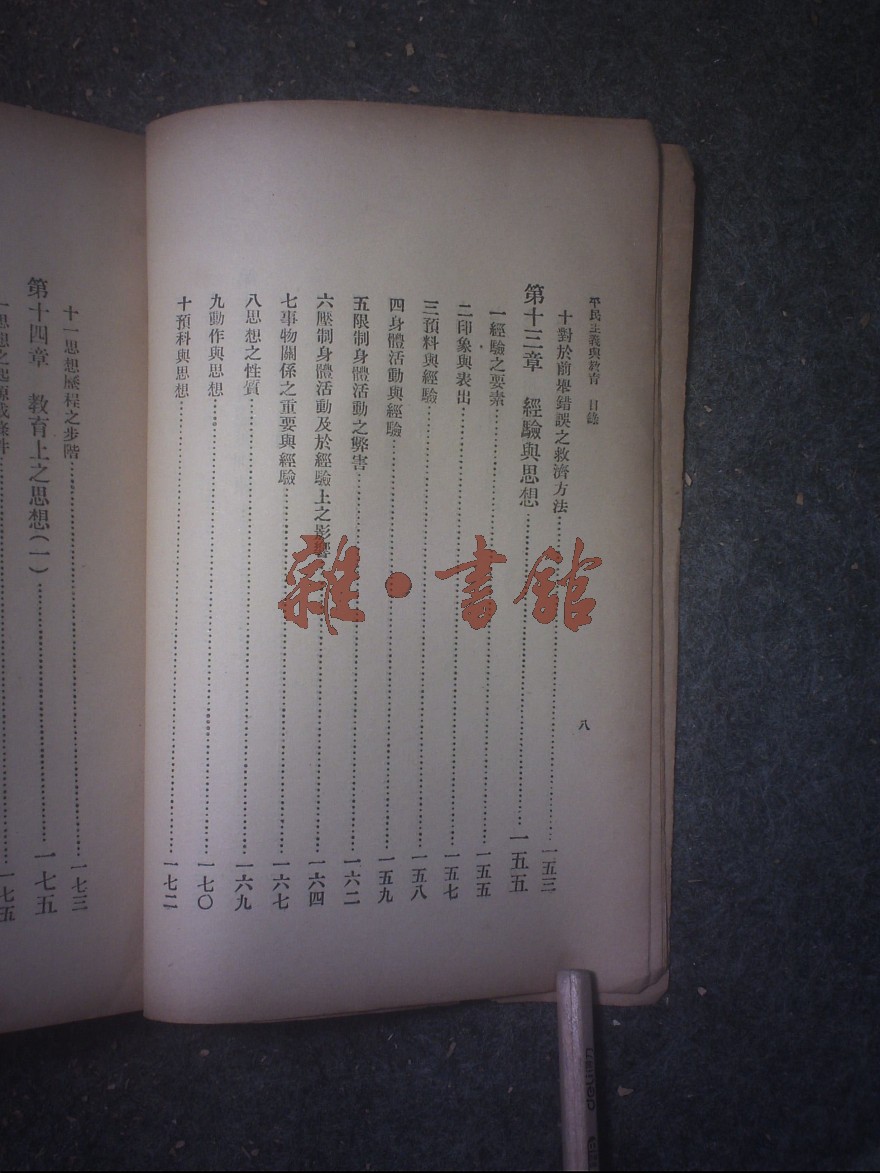 平民主義與教育 目錄
八
十對於前舉錯誤之救濟方法 一五三
第十三章 經驗與思想 一五五
一經驗之要素 一五五
二印象與表出 一五七
三預料與經驗 一五八
四身體活動與經驗 一五九
五限制身體活動之弊害 一六二
六壓制身體活動及於經驗上之影響 一六四
七事物關係之重要與經驗 一六七
八思想之性質 一六九
九動作與思想 一七〇
十預料與思想 一七二
十一思想歷程之步階 一七三
第十四章 教育上之思想(一) 一七五
一思想之起源或條件 一七五
雜·書館
deli